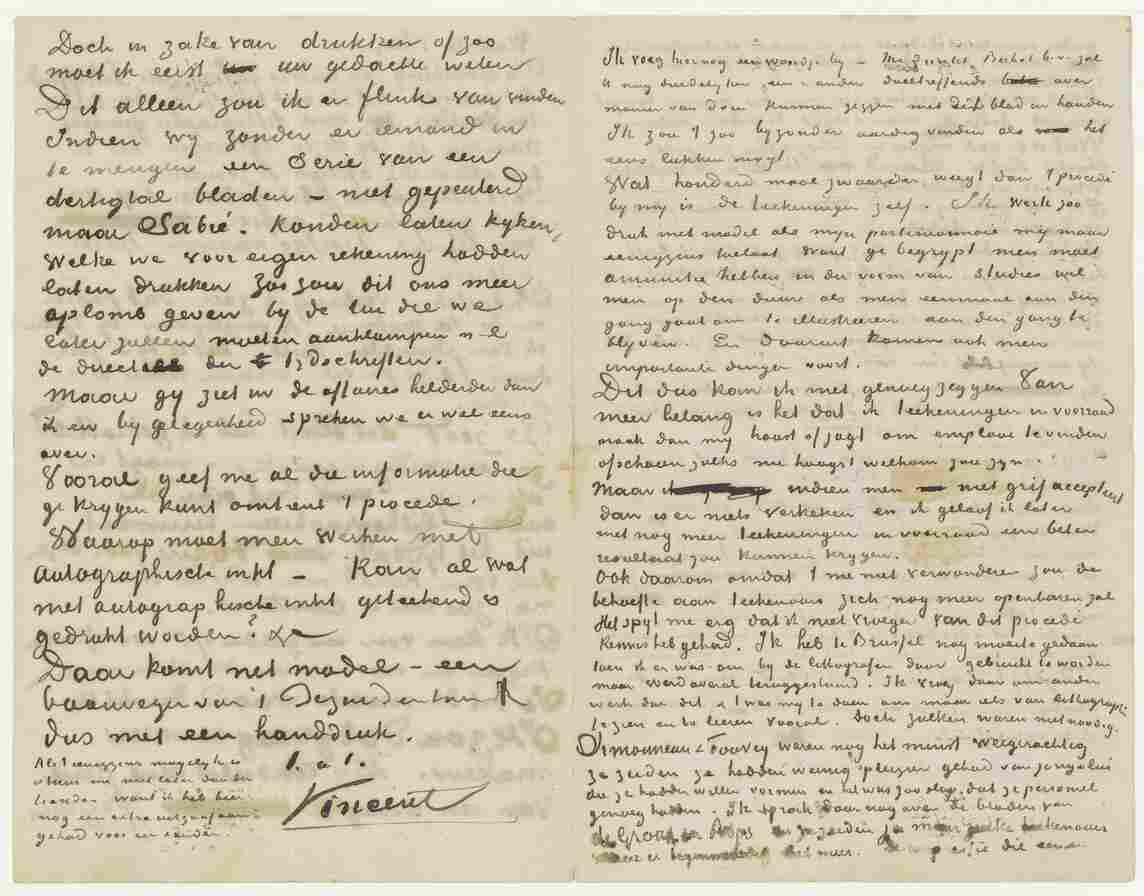 Doch in zake van drukken of zoo
moet ik eerst uw gedachte weten
Dit alleen zou ik er flink van vinden
Indien wy zonder er iemand in
te mengen een Serie van een
dertigtal bladen – niet gepeuterd
maar Sabré. Konden laten kyken,
welke we voor eigen rekening hadden
laten drukken zoo zou dit ons meer
aplomb geven by de lui die we
later zullen moeten aanklampen n–l
de directies der Tydschriften.
Maar gy ziet in de affaires helderder dan
ik en by gelegenheid spreken we er wel eens
over.
Vooral geef me al de informatie die
ge krygen kunt omtrent 't procédé.
Waarop moet men werken met
autographische inkt – Kan al wat
met autographische inkt geteekend is
gedrukt worden? &c
Daar komt net model – een
baanveger van 't Bezuidenhout
dus met een handdruk.
t. à t.
Vincent
Als 't eenigzins mogelyk is
stuur me niet later dan den
want ik heb hier
nog een extra uitgaaf aan
gehad voor een ander.
Ik voeg hier nog een woordje by –
u nog duidelyker, een ander doeltreffends over
manier van doen kunnen zeggen met de bladen in handen
Ik zou 't zoo byzonder aardig vinden als het
eens lukken mogt
Wat honderd maal zwaarder weegt dan 't procédé
by my is de teekeningen zelf. Ik werk zoo
druk met model als myn portemonnaie my maar
eenigzins toelaat want ge begrypt men moet
ammunitie hebben in den vorm van studies wil
men op den duur als men eenmaal aan den
gang gaat om te illustreeren aan den gang te
blyven. En daaruit komen ook meer
importante dingen voort.
Dit dus kan ik niet genoeg zeggen Van
meer belang is het dat ik teekeningen in voorraad
maak dan my haast of jagt om emplooi te vinden
ofschoon zulks me hoogst welkom zou zyn.
Maar indien men niet grif accepteert
dan is er niets verkeken en ik geloof ik later
met nog meer teekeningen in voorraad een beter
resultaat zou kunnen krygen.
Ook daarom omdat 't me niet verwonderen zou de
behoefte aan teekenaars zich nog meer openbaren zal
Het spyt me erg dat ik niet vroeger van dit procédé
kennis heb gehad. Ik heb te Brussel nog moeite gedaan
toen ik er was om by de lithografen door gebruikt te worden
maar werd overal teruggestuurd. Ik vroeg daar om ander
werk dan dit & 't was my te doen om maar iets van lithographie
te zien en te leeren vooral. Doch zulken waren niet noodig.
Simonneau & Toovey waren nog het minst weigerachtig
ze zeiden ze hadden weinig pleizier gehad van jongelui
die ze hadden willen vormen en het was zoo slap dat ze personeel
genoeg hadden. Ik sprak daar nog over de bladen van
de Groux en Rops en ze zeiden ja maar zulke teekenaars